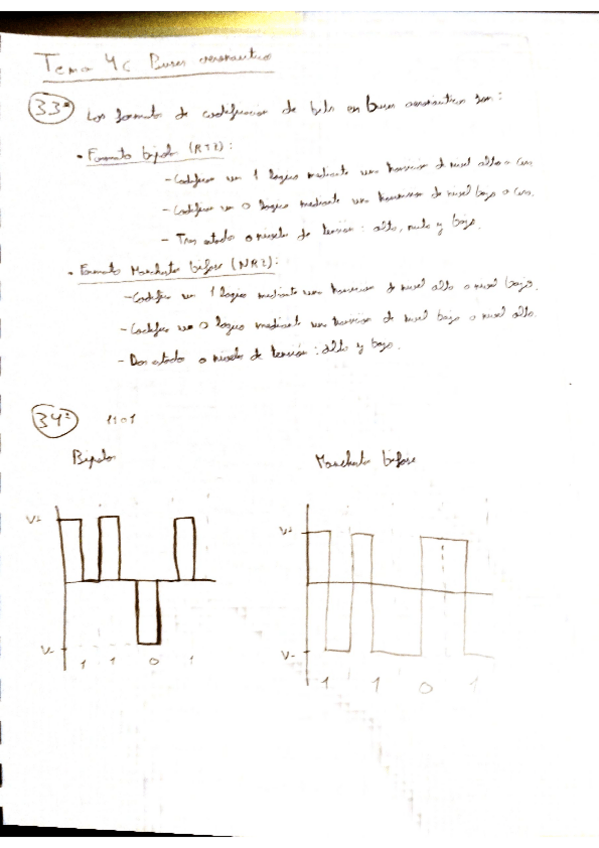 Tema 4c Buses aeronauticos
33ª Los formatos de codificacion de bits en buses aeronauticos son:
• Formato bipolar (RTZ):
- Codifican un 1 logico mediante una transicion de nivel alto a cero
- Codifican un 0 logico mediante una transicion de nivel bajo a cero.
- Tres estados o niveles de tension: alto, nulo y bajo.
• Formato Manchester bifase (NRZ):
- Codifica un 1 logico mediante una transicion de nivel alto a nivel bajo.
- Codifica un 0 logico mediante una transicion de nivel bajo a nivel alto.
- Dos estados o niveles de tension: alto y bajo.
34ª 1101
Bipolar Manchester bifase
V+ V+
V- V-
1 1 0 1 1 1 0 1